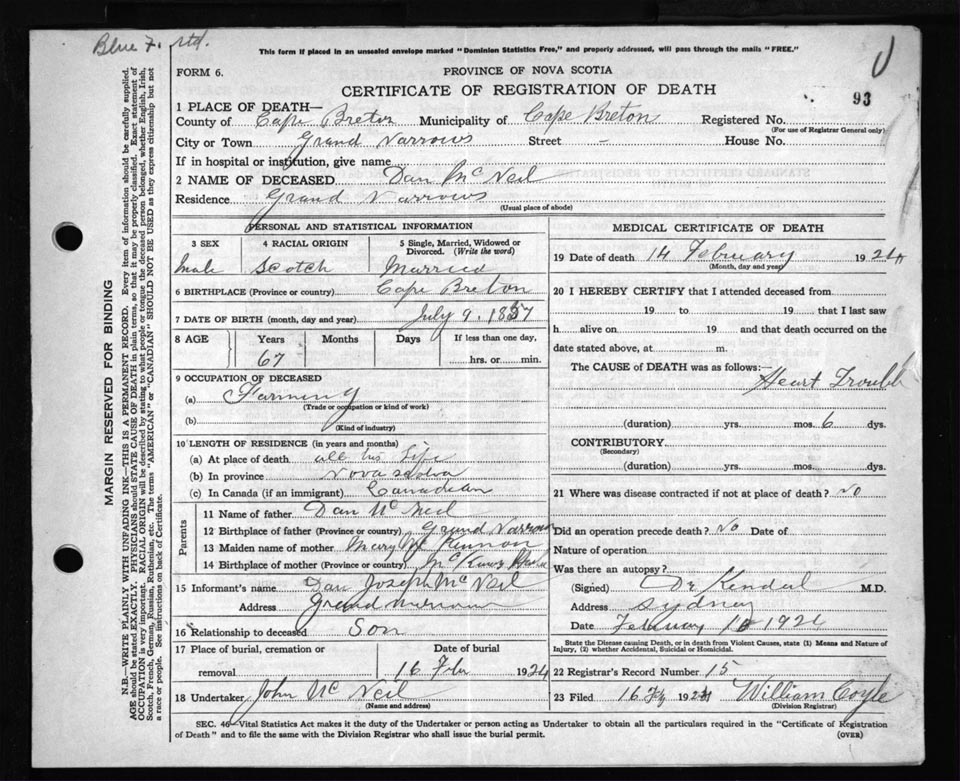 Blue F. std.
This form if placed in an unsealed envelope marked "Dominion Statistics Free," and properly addressed, will pass through the mails "FREE."
FORM 6.
PROVINCE OF NOVA SCOTIA
CERTIFICATE OF REGISTRATION OF DEATH
93
1 PLACE OF DEATH—
County of Cape Breton Municipality of Cape Breton Registered No.
(For use of Registrar General only)
City or Town Grand Narrows Street - House No.
If in hospital or institution, give name
2 NAME OF DECEASED Dan McNeil
Residence Grand Narrows
(Usual place of abode)
PERSONAL AND STATISTICAL INFORMATION
3 SEX 4 RACIAL ORIGIN 5 Single, Married, Widowed or Divorced. (Write the word)
male Scotch Married
6 BIRTHPLACE (Province or country) Cape Breton
7 DATE OF BIRTH (month, day and year) July 9. 1857
8 AGE Years Months Days If less than one day,
67 hrs. or min.
9 OCCUPATION OF DECEASED
(a) Farming
(Trade or occupation or kind of work)
(b)
(Kind of industry)
10 LENGTH OF RESIDENCE (in years and months)
(a) At place of death all his Life
(b) In province Nova Scotia
(c) In Canada (if an immigrant) Canadian
Parents
11 Name of father Dan McNeil
12 Birthplace of father (Province or country) Grand Narrows
13 Maiden name of mother Mary McKinnon
14 Birthplace of mother (Province or country)
15 Informant's name Dan Joseph McNeil
Address Grand Narrows
16 Relationship to deceased Son
17 Place of burial, cremation or removal Date of burial
16 Feb 1924
18 Undertaker John McNeil
(Name and address)
MEDICAL CERTIFICATE OF DEATH
19 Date of death 14 February 1924
(Month, day and year)
20 I HEREBY CERTIFY that I attended deceased from
19 to 19 that I last saw
h alive on 19 and that death occurred on the
date stated above, at m.
The CAUSE of DEATH was as follows:—
Heart Trouble
(duration) yrs. mos. 6 dys.
CONTRIBUTORY
(Secondary)
(duration) yrs. mos. dys.
21 Where was disease contracted if not at place of death? No
Did an operation precede death? No Date of
Nature of operation
Was there an autopsy?
(Signed) Dr Kendal M.D.
Address Sydney
Date February 16 1924
State the Disease causing Death, or in death from Violent Causes, state (1) Means and Nature of Injury, (2) whether Accidental, Suicidal or Homicidal.
22 Registrar's Record Number 15
23 Filed 16 Feb 1924 William Coyle
(Division Registrar)
SEC. 46—Vital Statistics Act makes it the duty of the Undertaker or person acting as Undertaker to obtain all the particulars required in the "Certificate of Registration
of Death" and to file the same with the Division Registrar who shall issue the burial permit.
(OVER)
MARGIN RESERVED FOR BINDING
N.B.—WRITE PLAINLY WITH UNFADING INK—THIS IS A PERMANENT RECORD. Every item of information should be carefully supplied.
AGE should be stated EXACTLY. PHYSICIANS should STATE CAUSE OF DEATH in plain terms, so that it may be properly classified. Exact statement of
OCCUPATION is very important. RACIAL ORIGIN will be described by stating to what people or tongue the deceased person belonged, whether English, Irish,
Scotch, French, German, Russian, Ruthenian, etc. The terms "AMERICAN" or "CANADIAN" SHOULD NOT BE USED as they express citizenship but not
a race or people. See instructions on back of Certificate.